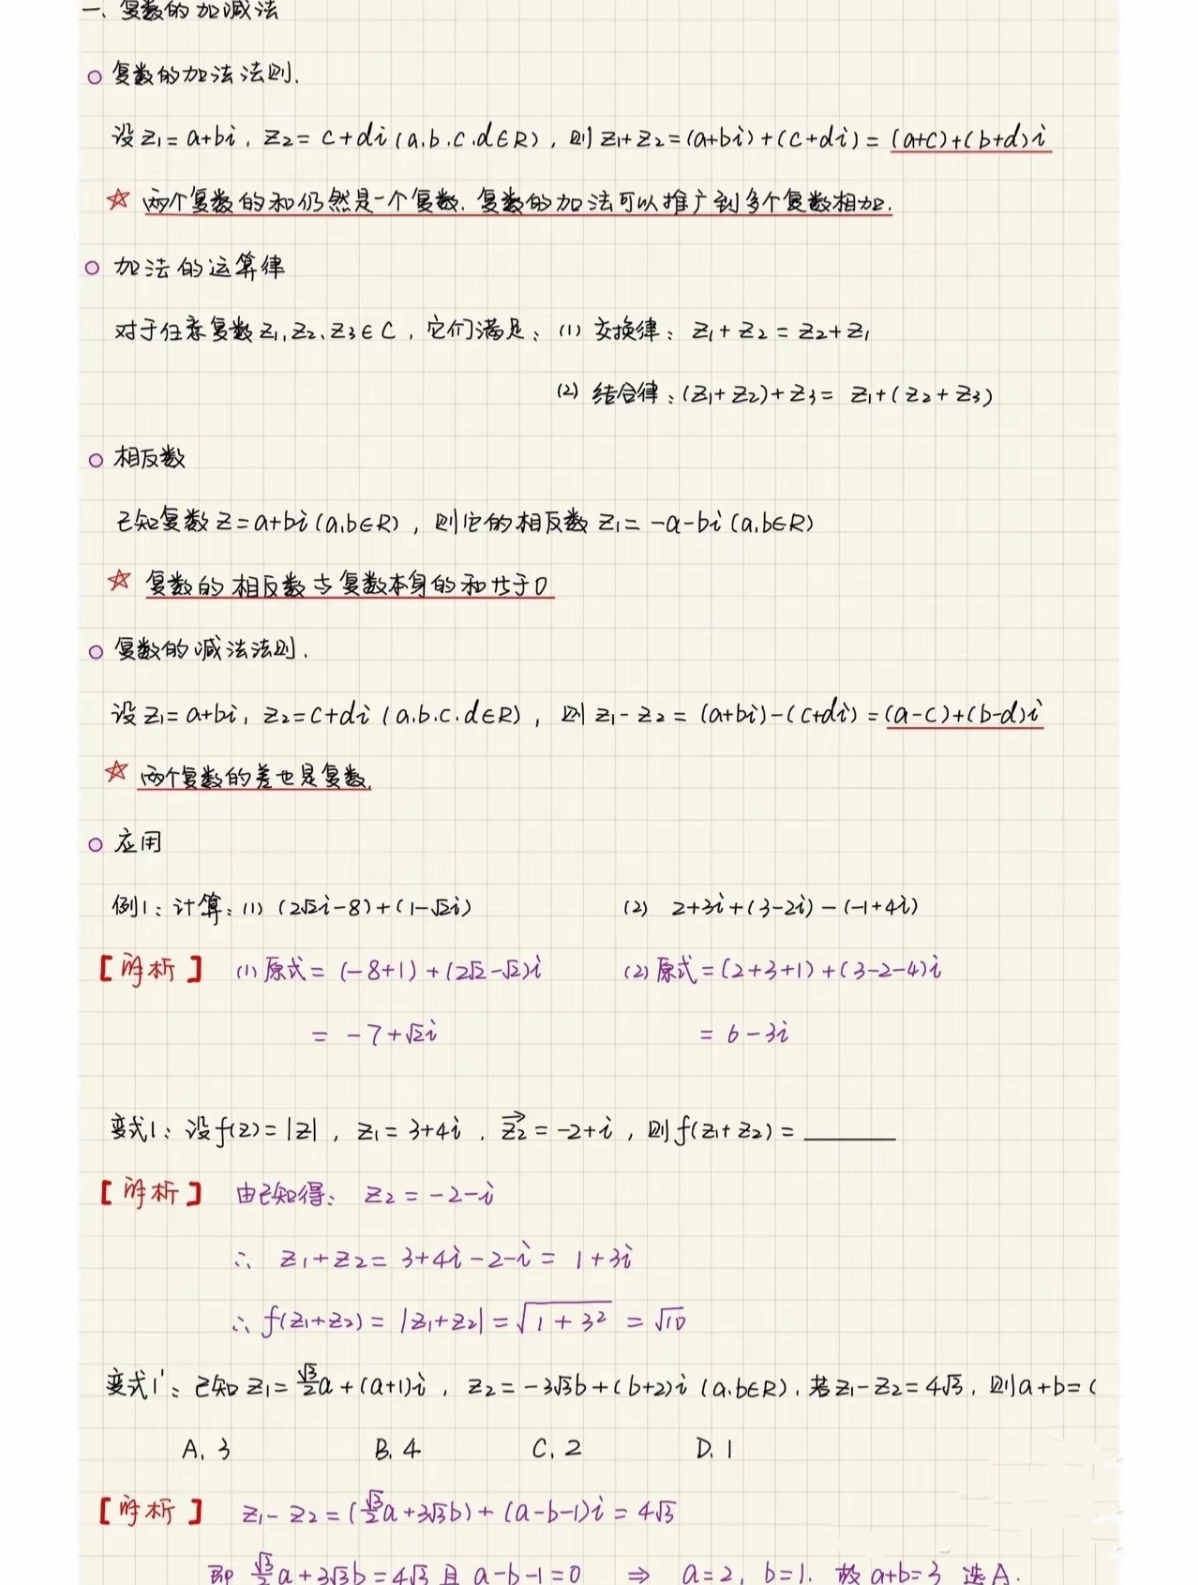 一、复数的加减法
复数的加法法则.
设z₁=a+bi, z₂=c+di(a.b.c.d∈R), 则z₁+z₂=(a+bi)+(c+di)=(a+c)+(b+d)i
☆ 两个复数的和仍然是一个复数. 复数的加法可以推广到多个复数相加.
加法的运算律
对于任意复数z₁,z₂,z₃∈C, 它们满足: (1) 交换律: z₁+z₂=z₂+z₁
(2) 结合律: (z₁+z₂)+z₃= z₁+(z₂+z₃)
相反数
已知复数z=a+bi(a,b∈R), 则它的相反数z₁=-a-bi(a,b∈R)
☆ 复数的相反数与复数本身的和等于0
复数的减法法则.
设z₁=a+bi, z₂=c+di(a.b.c.d∈R), 则z₁-z₂=(a+bi)-(c+di)=(a-c)+(b-d)i
☆ 两个复数的差也是复数.
应用
例1: 计算: (1) (2√2i-8)+(1-√2i) (2) 2+3i+(3-2i)-(-1+4i)
【解析】 (1)原式=(-8+1)+(2√2-√2)i (2)原式=(2+3+1)+(3-2-4)i
= -7+√2i = 6-3i
变式1: 设f(z)=|z|, z₁=3+4i, z₂→=-2+i, 则f(z₁+z₂)=______
【解析】 由已知得: z₂=-2-i
∴ z₁+z₂=3+4i-2-i=1+3i
∴ f(z₁+z₂)=|z₁+z₂|=√(1+3²)=√10
变式1': 已知z₁=√3/2a+(a+1)i, z₂=-3√3b+(b+2)i(a.b∈R), 若z₁-z₂=4√3, 则a+b=(
A. 3 B. 4 C. 2 D. 1
【解析】 z₁-z₂=(√3/2a+3√3b)+(a-b-1)i=4√3
即 √3/2a+3√3b=4√3 且 a-b-1=0 ⇒ a=2, b=1. 故a+b=3 选A.